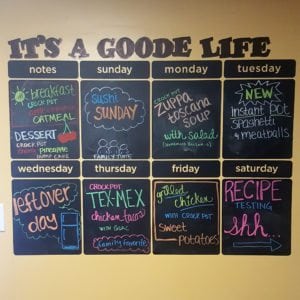 IT'S A GOODE LIFE
notes
breakfast
CROCK POT
OATMEAL
DESSERT
CROCK POT
cherry pineapple
DUMP CAKE
sunday
sushi
SUNDAY
FAMILY TIME
monday
CROCK POT
ZUPPA
toscana
SOUP
with salad
tuesday
NEW
INSTANT POT
spaghetti
& meatballs
wednesday
leftover
day
thursday
CROCKPOT
TEX-MEX
chicken tacos
WITH GUAC
family favorite
friday
grilled
chicken
WITH CROCK POT
sweet
potatoes
saturday
RECIPE
TESTING
shh...